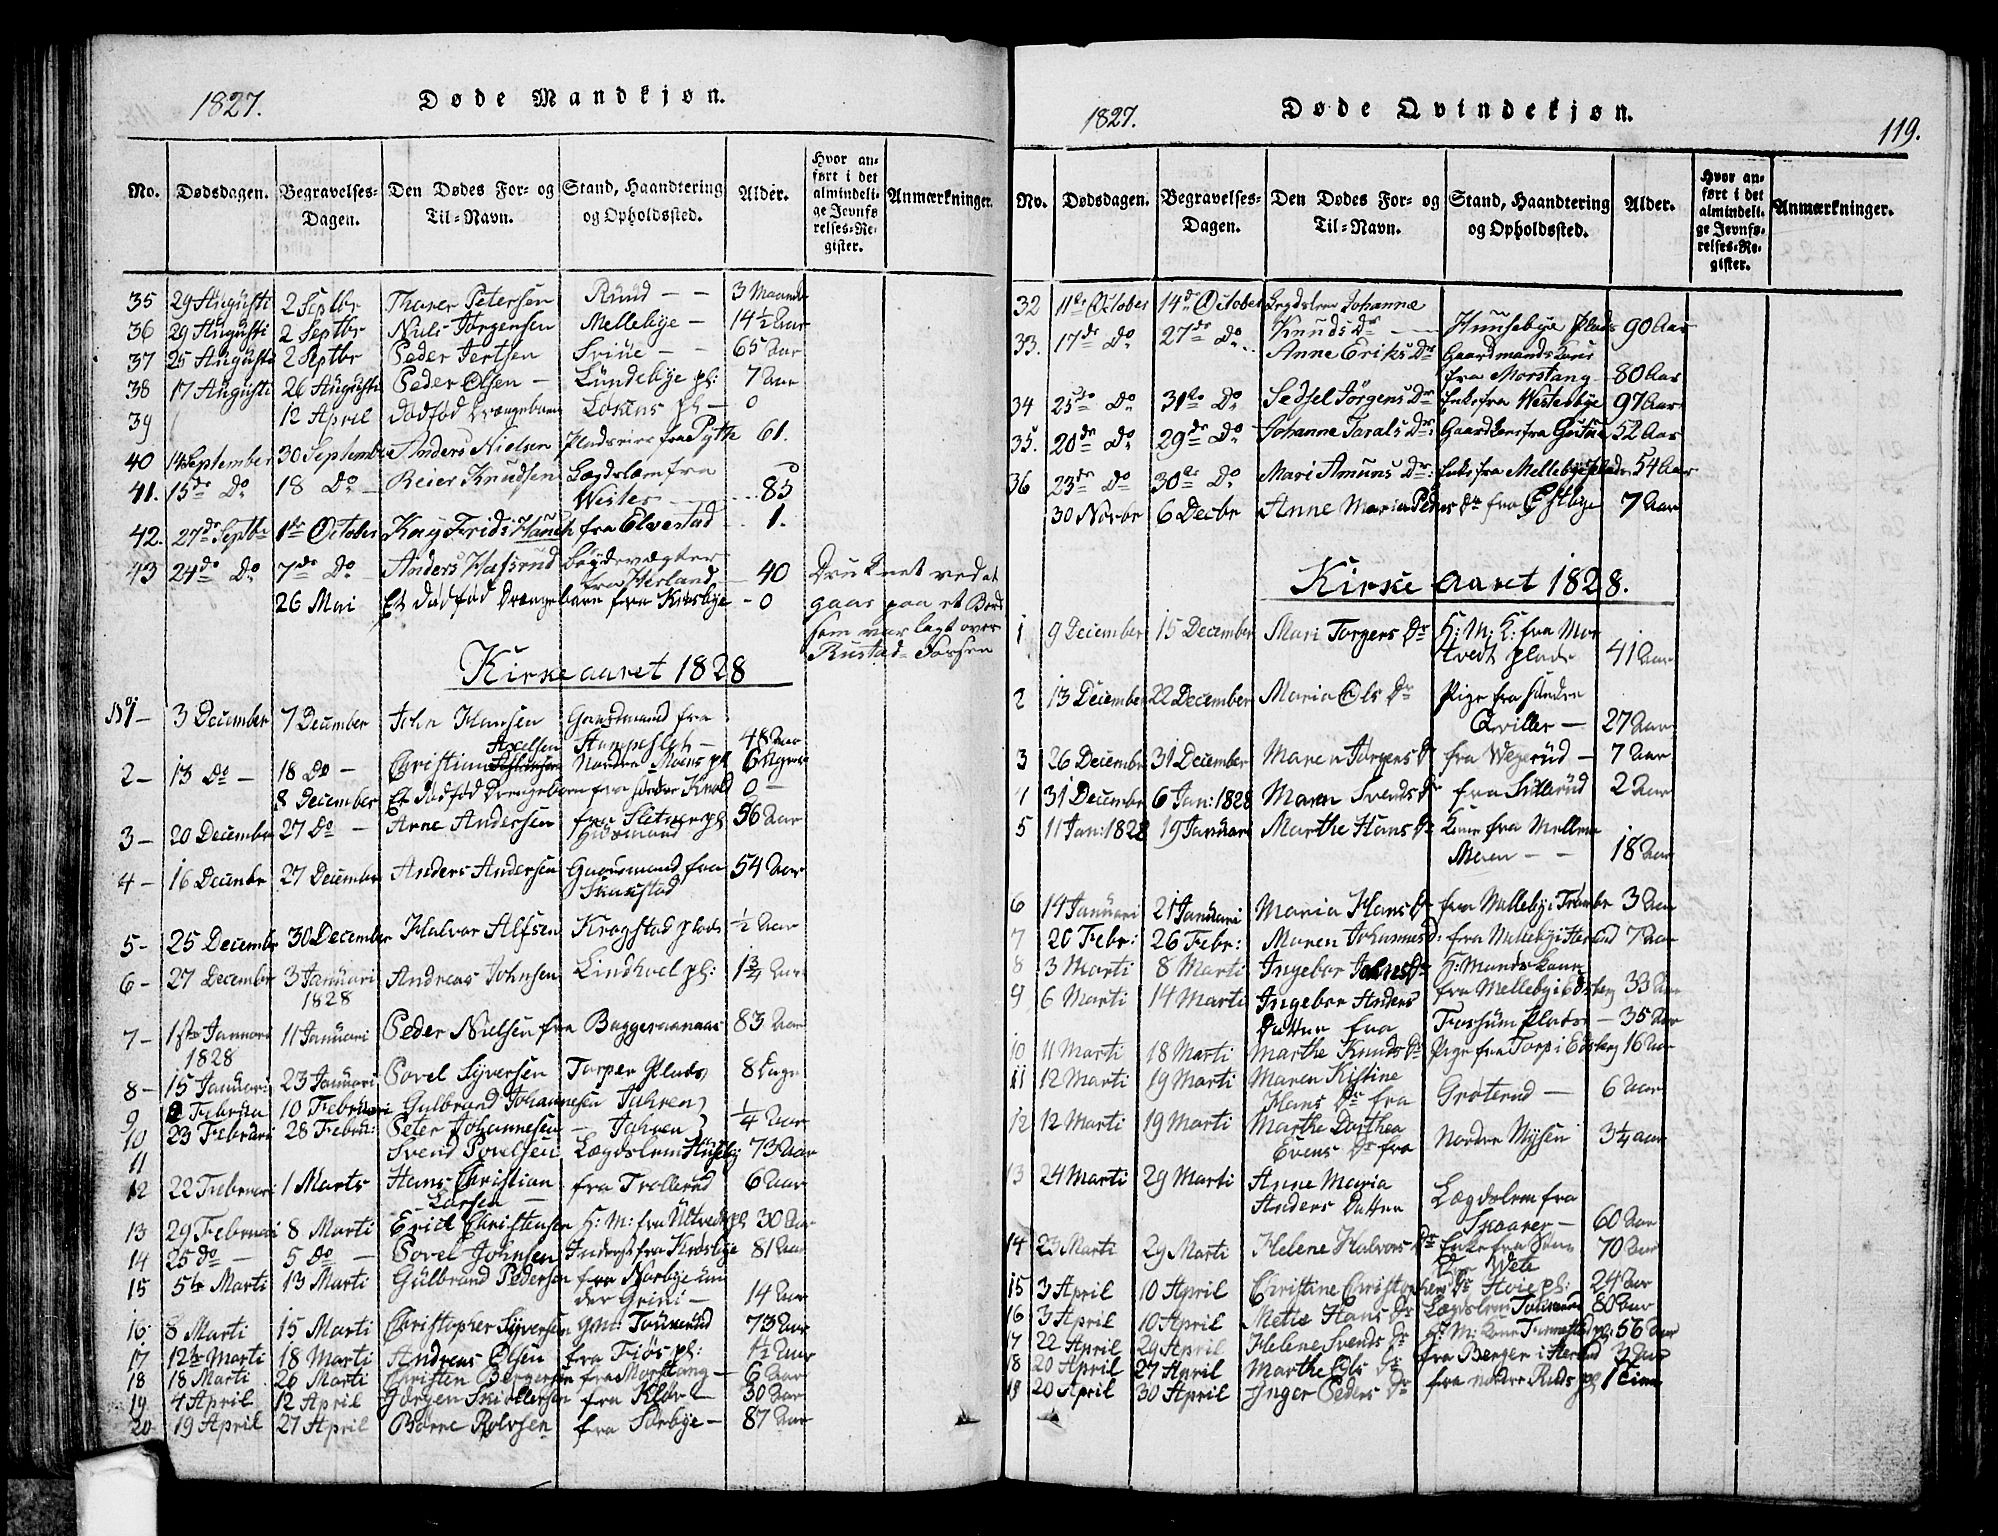 1827.
Døde Mandkjøn.
No. Dødsdagen. Begravelses-Dagen. Den Dødes For- og Til-Navn. Stand, Haandtering og Opholdssted. Alder. Hvor anført i det almindelige Jevnførelses-Register. Anmærkninger.
35 29 Augusti 2 Septbr Thorer Petersen Ruud — — 3 Maander
36 29 Augusti 2 Septbr Niels Jørgensen Mellebye — 14 1/2 Aar
37 25 Augusti 2 Septbr Peder Jertsen — — 65 Aar
38 17 Augusti 26 Augusti Peder Olsen — Lundebye pl: 7 Aar
39 12 April Dødfød Drængebarn Løkens pl — 0
40 14 September 30 September Anders Nielsen Pladseier fra 61.
41. 15de Do 18 Do Reier Knudsen Lægdslem fra
Wester 85
42. 27de Septbr 1ste October Kay Frids Hauch fra Elvestad 1.
43 24de Do 7de Do Anders Hafsrud
fra Herland — 40 Druknet ved at
26 Mai Et dødfød Drængebarn fra Krosbye — 0 gaae paa et Bord
som var lagt over
Rustad-Forsen
Kirke aaret 1828
No 1 — 3 December 7 December John Hansen Gaardmand fra
— 48 Aar
2 — 13 Do — 18 Do — Christian Axelsen Nordre Moens pl 6
8 December Et dødfød Drængebarn fra søndre 0 —
3 — 20 December 27 Do — Arne Andersen fra Sletner pl 56 Aar
Huusmand
4 — 16 Decembr 27 December Anders Andersen Gaardmand fra 54 Aar
5 — 25 Decembr 30 December Halvor Alfsen Krogstad plads 1/2 Aar
6 — 27 December 3 Januari Andreas Johnsen Lindhoel pl: 1 3/4 Aar
1828
7 — 1ste Januari 11 Januari Peder Nielsen fra Baggeraanaas 83 Aar
1828
8 — 15 Januari 23 Januari Povel Syversen Torper Plads 8 Dage
9 2 Februa 10 Februari Gulbrand Johannesen Jahren
10 23 Februari 28 Febru: Peter Johannesen — Jahren 1/4 Aar
11 Svend Povelsen Lægdslem Huseby 73 Aar
12 22 Februari 1 Marts Hans Christian fra Trollerud 6 Aar
Larsen —
13 29 Februari 8 Marti Erick Christensen H: M: fra Ultved pl 30 Aar
14 25 Do — 5 Do — Povel Johnsen Inderst fra Krosbye 81 Aar
15 5te Marti 13 Marti Gulbrand Pedersen fra Norbye un
der Grini — 14 Aar
16 8 Marti 15 Marti Christopher Syversen gM: 73 Aar
17 12te Marti 18 Marti Andreas Olsen fra Fiøs pl: 1/2 Aar
18 18 Marti 26 Marti Christin Borgersen fra Morstang — 6 Aar
19 4 April 12 April Jørgen fra — 30 Aar
20 19 April 27 April Børre Rolvsen fra Sørbye — 87 Aar
1827.
Døde Qvindekjøn.
119.
No. Dødsdagen. Begravelses-Dagen. Den Dødes For- og Til-Navn. Stand, Haandtering og Opholdssted. Alder. Hvor anført i det almindelige Jevnførelses-Register. Anmærkninger.
32 11te October 14de October Legdslem Johanne
Knuds Dr — Huusebye Plads 90 Aar
33. 17de Do 27de Do Anne Eriks Dr Gaardmands Kone
fra Morstang 80 Aar
34 25de Do 31te Do Sedsel Jørgens Dr Enke fra Westerbye 97 Aar
35. 20de Do 29de Do Johanne Tarals Dr: Gaardkone fra 52 Aar
36 23de Do 30te Do Mari Amuns Dr: Enke fra Mellebye plads 54 Aar
30 Novbr 6 Decbr Anne Maria Peders Dr fra Østbye 7 Aar
Kirke aaret 1828.
1 9 December 15 December Mari Torgers Dr H: M: K: fra Mor
tvedt plads 41 Aar
2 13 December 22 December Maria Ols Dr Pige fra søndre
Qviller — 27 Aar
3 26 Decembe 31 December Maren Jørgens Dr fra Wegerud — 7 Aar
4 31 Decembr 6 Jan: 1828 Maren Svends Dr fra Sillerud 2 Aar
5 11 Jan: 1828 19 Januari Marthe Hans Dr Kone fra Mellem
Moen — — 18 Aar
6 14 Januari 21 Januari Maria Hans Dr fra Mellebyi Trømbr 3 Aar
7 20 Febr: 26 Febr: Maren Johannesd: fra Mellebyi Herland 7 Aar
8 3 Marti 8 Marti Ingebor Johns Dr H: Mands kone
9 6 Marti 14 Marti Ingebor Anders fra Mellebyi Edsberg 33 Aar
Datter fra Fossum Plads — 35 Aar
10 11 Marti 18 Marti Marthe Knuds Dr Pige fra Torp i Edsberg 16 Aar
11 12 Marti 19 Marti Maren Kistine
Hans Dr fra Grøterud — 6 Aar
12 12 Marti 19 Marti Marthe Dorthea
Evens Dr fra Nordre Mysen 3 1/4 aar
13 24 Marti 29 Marti Anne Maria
Anders Datter Lægdslem fra
Skaarer — 60 Aar
14 23 Marti 29 Marti Helene Halvors Dr Enke fra 70 Aar
15 3 April 10 April Christine Christophers Dr Høie pl: 24 Aar
16 3 April 10 April Mette Hans Dr Lægdslem 80 Aar
17 22 April 29 April Helene Svends Dr H: M: Kone pl: 56 Aar
18 20 April 27 April Marthe Dr fra Berger i Herland 3 Aar
19 20 April 30 April Inger Peders Dr fra nordre Ruds pl 1